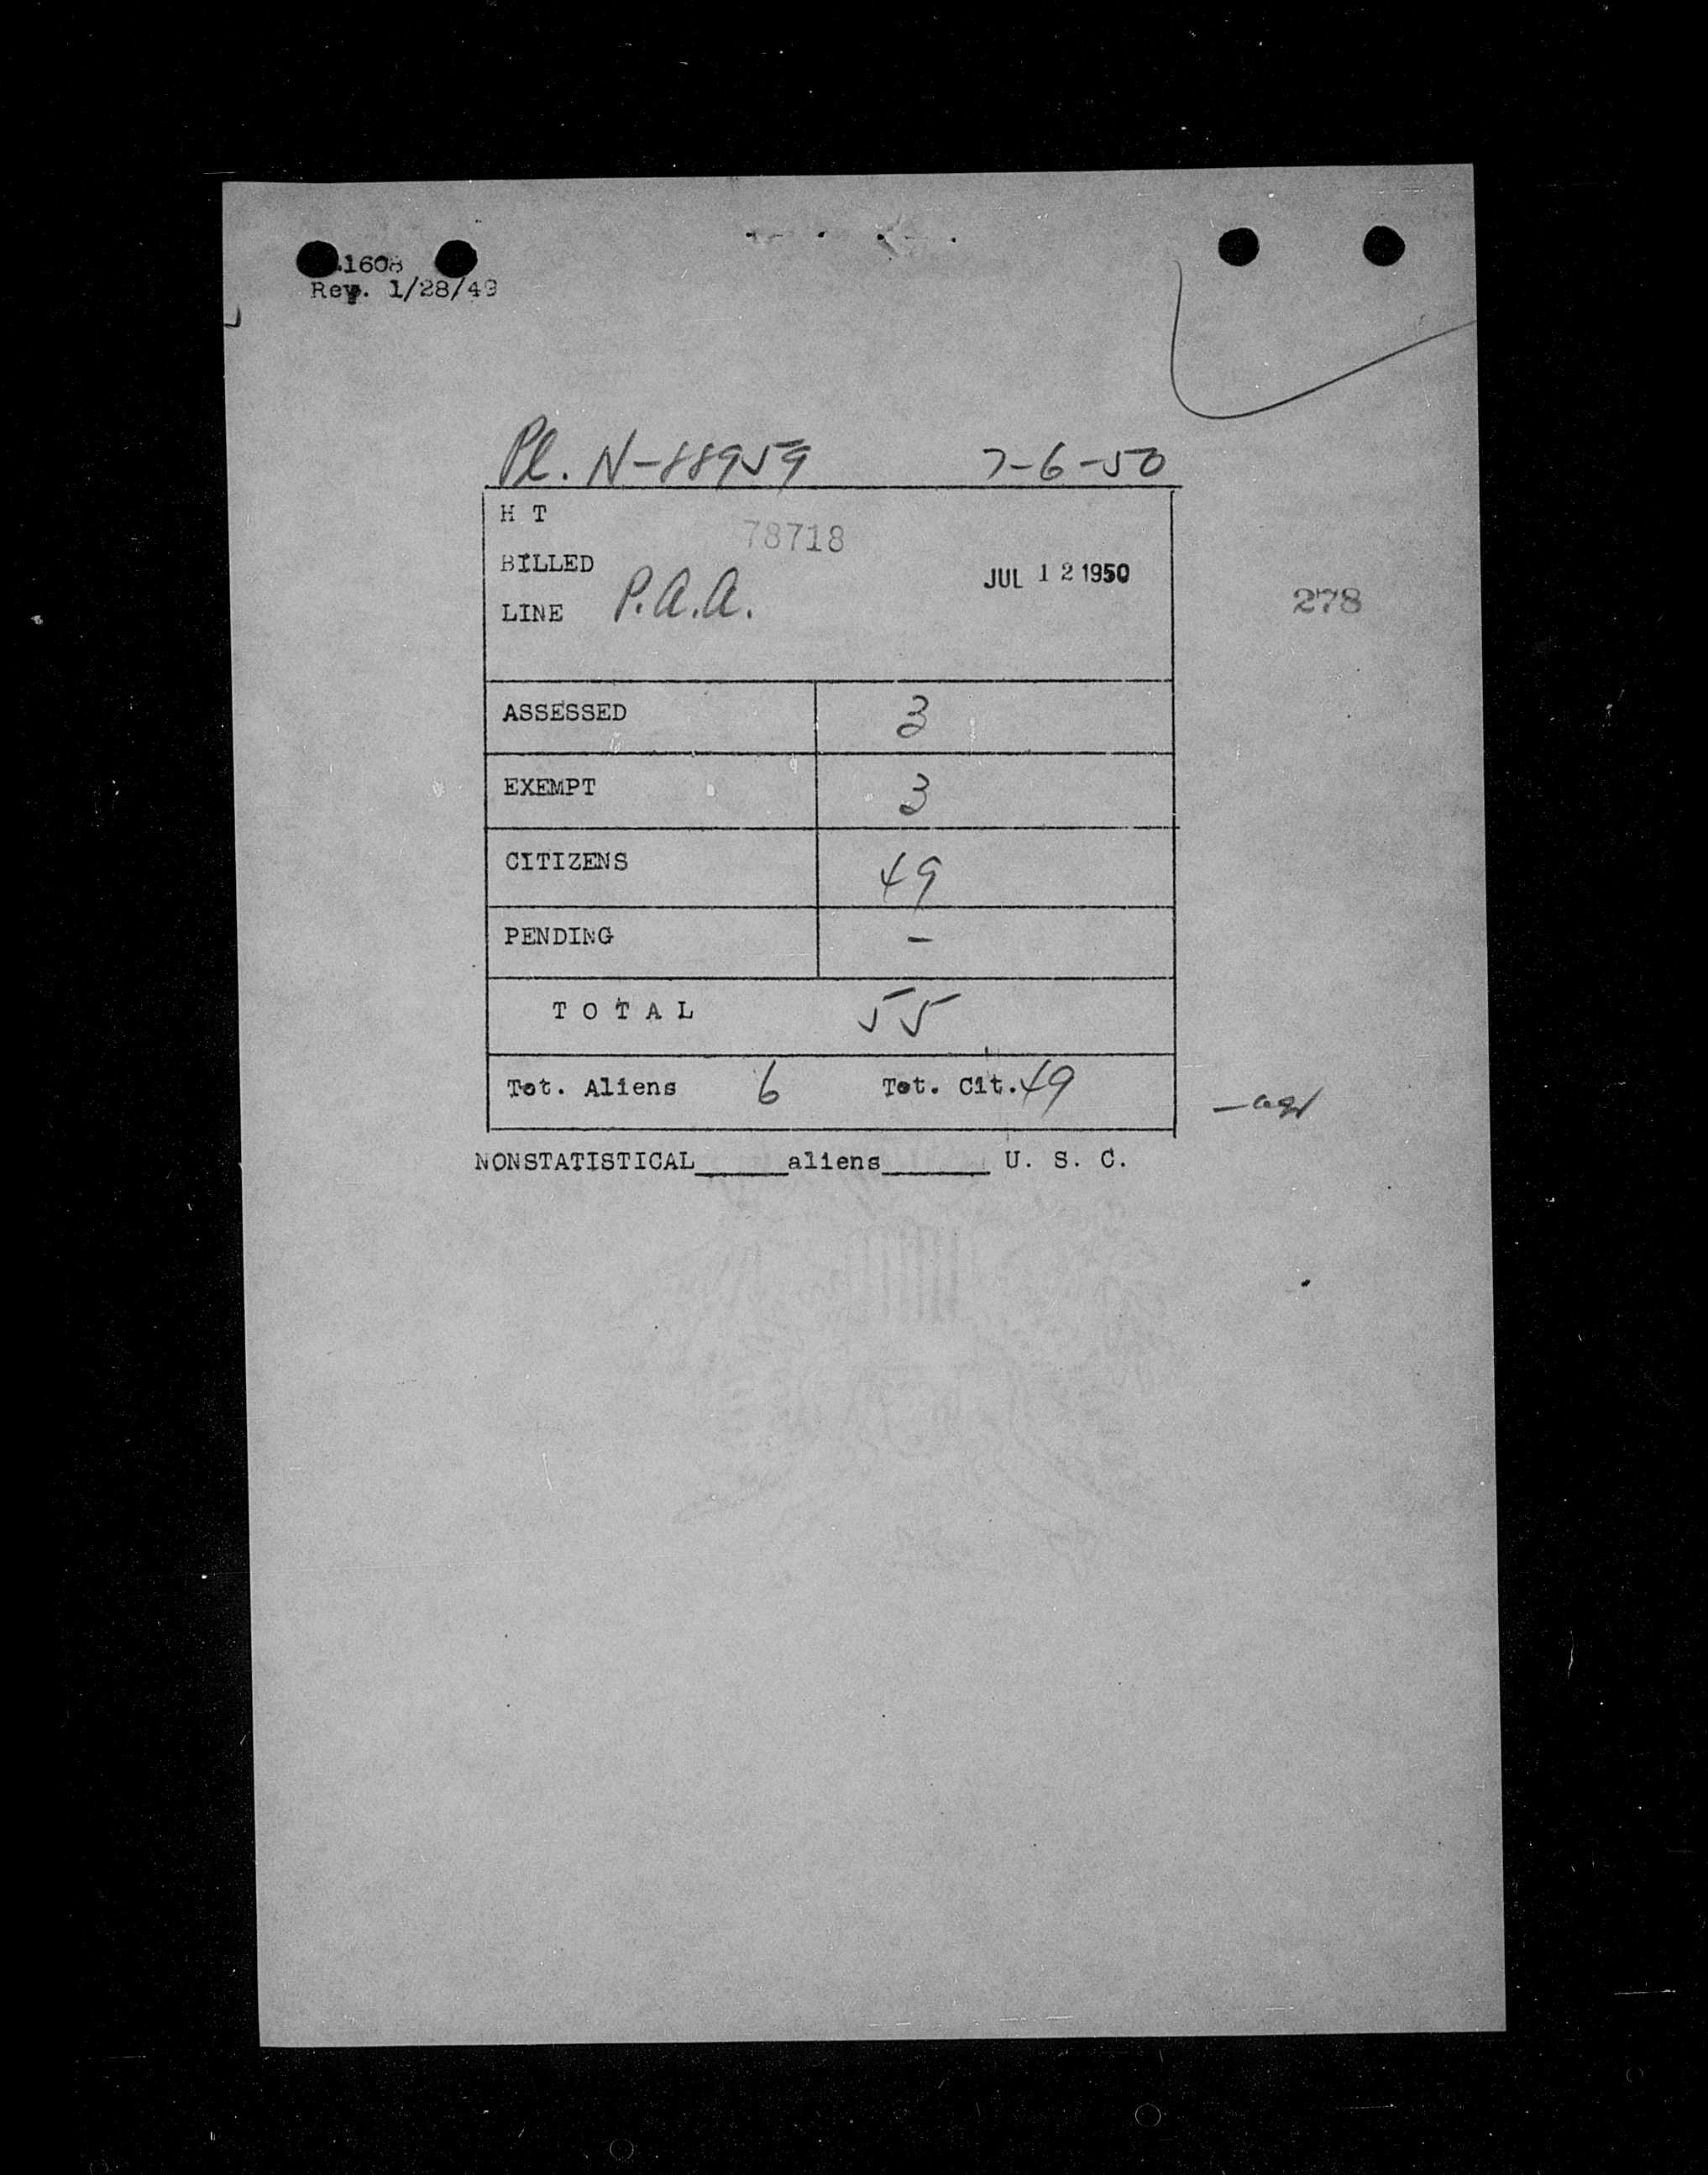 .1608
Rev. 1/28/49
Pl. N-88959 7-6-50
H T
78718
BILLED
JUL 12 1950
LINE P.A.A.
278
ASSESSED 3
EXEMPT 3
CITIZENS 49
PENDING -
TOTAL 55
Tot. Aliens 6 Tot. Cit. 49
NONSTATISTICAL______aliens_______ U. S. C.